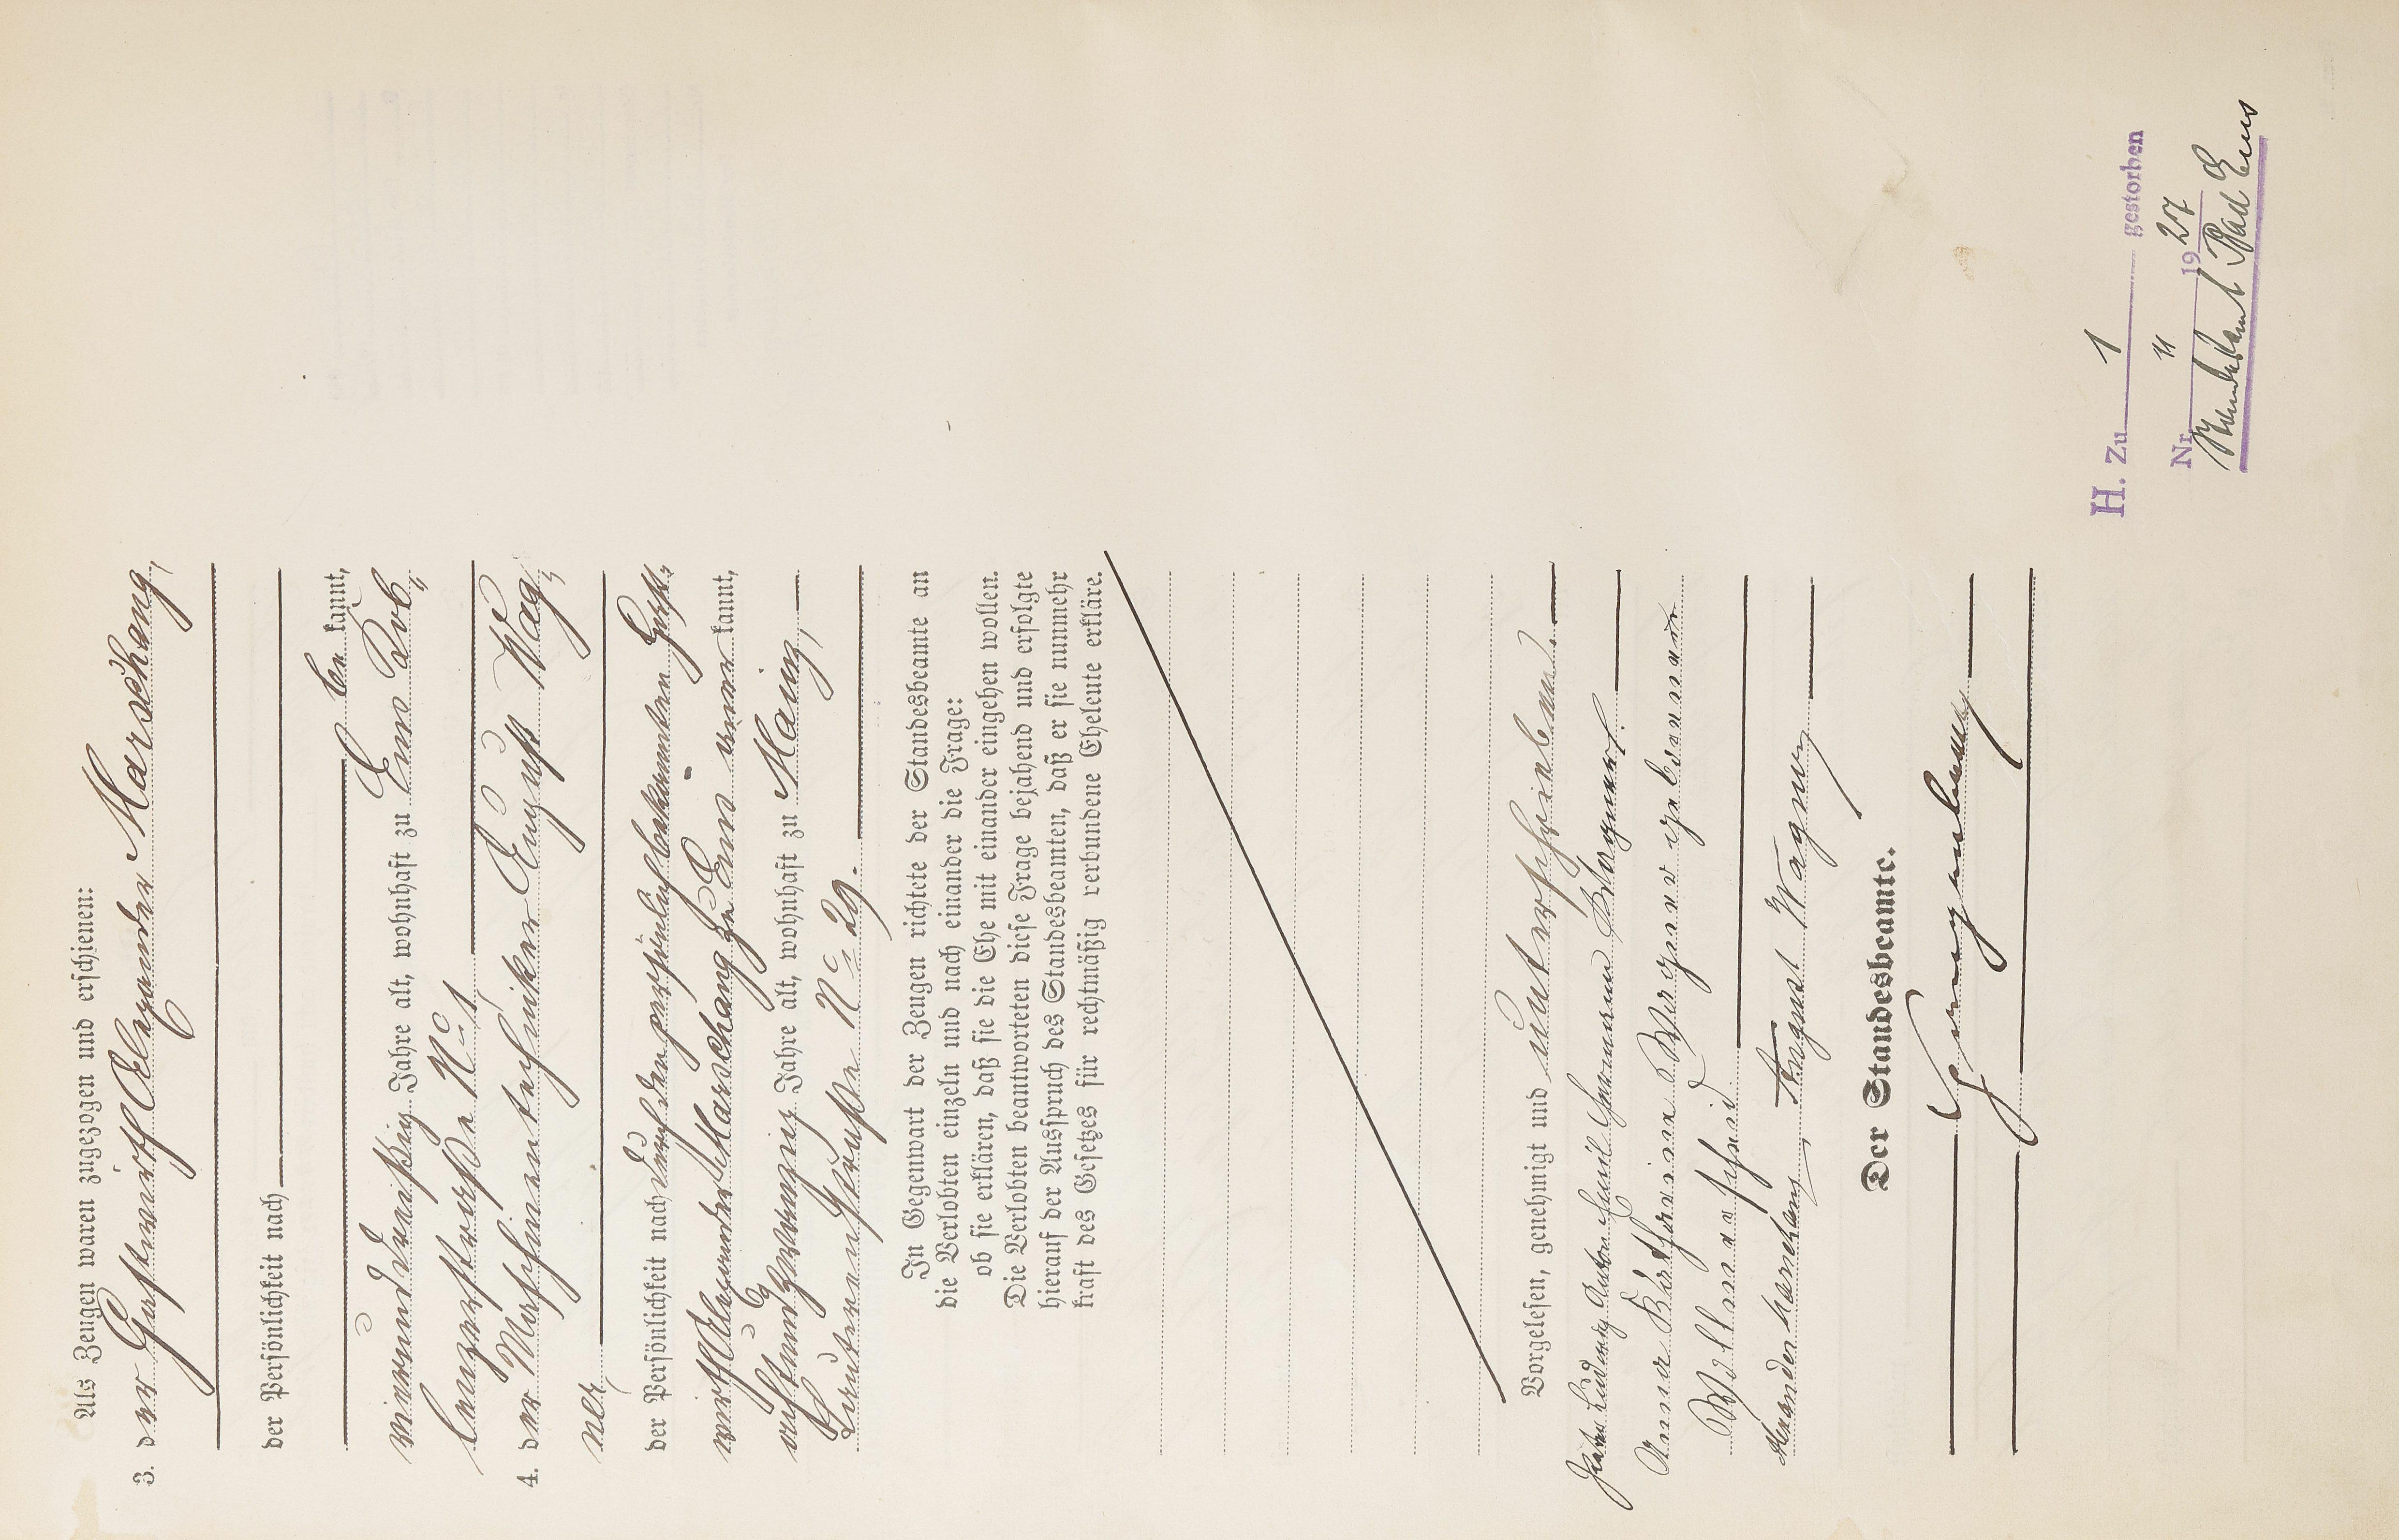 Als Zeugen waren zugezogen und erschienen:
3. der Gastwirth Alexander Marschang,
der Persönlichkeit nach
be kannt,
vierunddreißig Jahre alt, wohnhaft zu Ems Cob„
lenzerstraße No 1
4. der Maschinentechniker August Wag„
ner,
der Persönlichkeit nach durch den persönlich bekannten Gast„
wirth Alexander Marschang zu Ems aner kannt,
achtundzwanzig Jahre alt, wohnhaft zu Mainz,
straße No 29.
In Gegenwart der Zeugen richtete der Standesbeamte an
die Verlobten einzeln und nach einander die Frage:
ob sie erklären, daß sie die Ehe mit einander eingehen wollen.
Die Verlobten beantworteten diese Frage bejahend und erfolgte
hierauf der Ausspruch des Standesbeamten, daß er sie nunmehr
kraft des Gesetzes für rechtmäßig verbundene Eheleute erkläre.
Vorgelesen, genehmigt und unterschrieben.
Ludwig Anton Emil Hermann Wagner.
Anna Katharina Wagner geborene
Alexander Marschang, August Wagner
Der Standesbeamte.
H. Zu 1 gestorben
Nr. " 1927
Standesamt Bad Ems